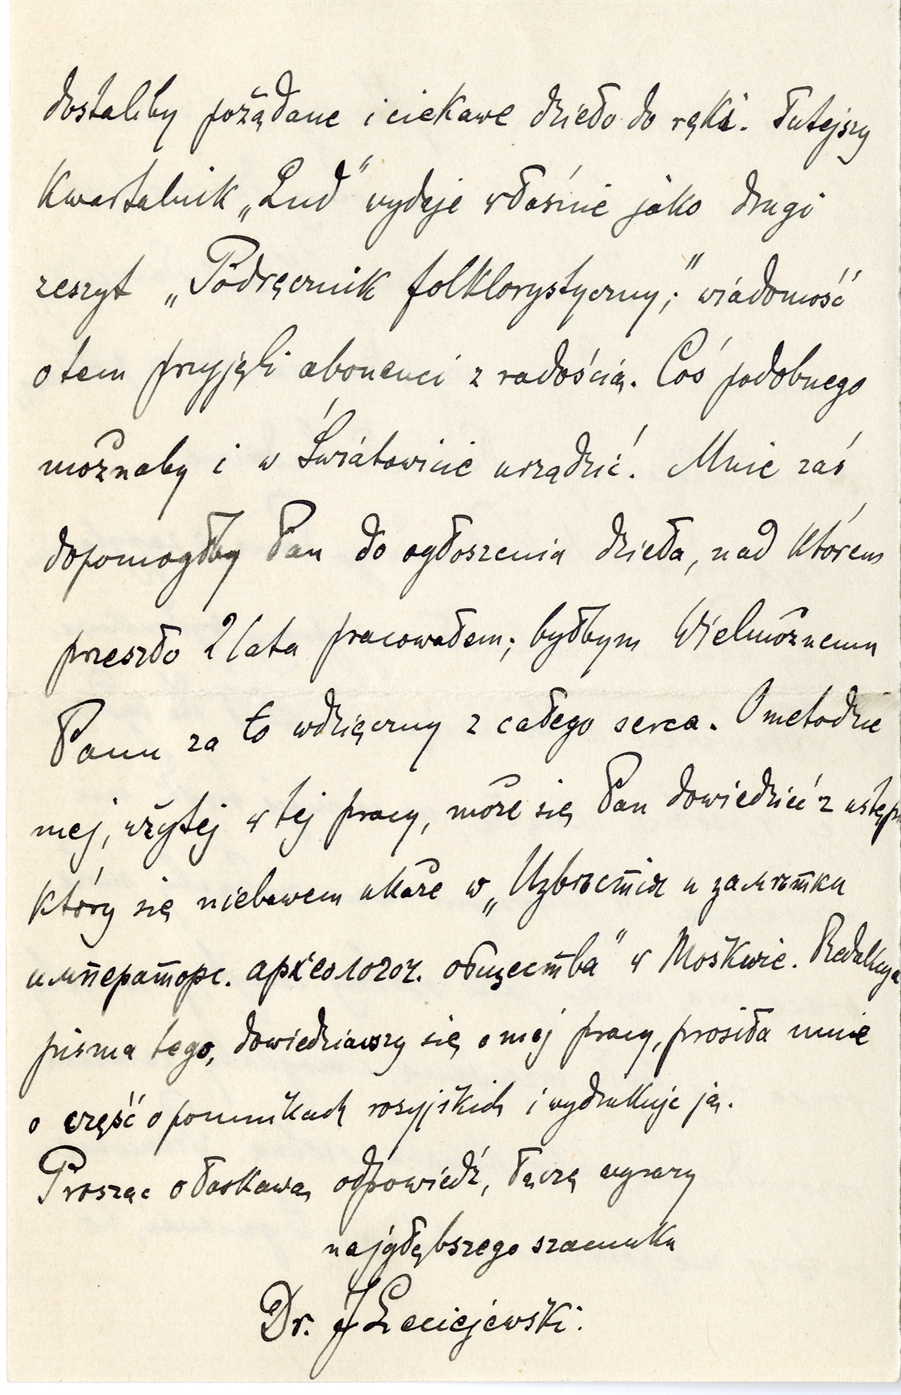 dostaliby pożądane i ciekawe dzieło do ręki. Tutejszy
kwartalnik „Lud” wydaje właśnie jako drugi
zeszyt „Podręcznik folklorystyczny;” wiadomość
o tem przyjęli abonenci z radością. Coś podobnego
możnaby i w Światowicie urządzić. Mnie zaś
dopomógłby Pan do ogłoszenia dzieła, nad którem
przeszło 2 lata pracowałem; byłbym Wielmożnemu
Panu za to wdzięczny z całego serca. O metodzie
mej, użytej w tej pracy, może się Pan dowiedzieć z ustępu
który się niebawem ukaże w „Извѣстія и замѣтки
императорс. археологоч. общества” w Moskwie. Redakcya
pisma tego, dowiedziawszy się o mej pracy, prosiła mnie
o część o pomnikach rosyjskich i wydrukuje ją.
Prosząc o łaskawą odpowiedź, łączę wyrazy
najgłębszego szacunku
Dr. J Leciejewski.